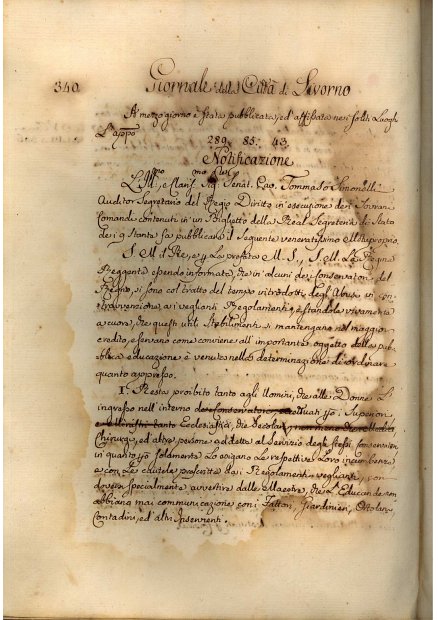 340 Giornale della Città di Livorno
A mezzo giorno è stata pubblicata, ed affissata nei soliti Luoghi
L'appo
280. 85: 43.
Notificazione
L'Ill:mo, e Clar:mo Sig: Senat. Cav. Tommaso Simonelli
Auditor Segretario del Regio Diritto in esecuzione dei Sovrani
Comandi contenuti in un Biglietto della Real Segreteria di Stato
dei 9 Stante fa pubblicare il seguente veneratissimo Motuproprio.
S. M. il Re, e per La prefata M. S., S. M. La Regina
Reggente essendo informata, che in alcuni dei Conservatori del
Regno, si sono col tratto del tempo introdotti degli Abusi in con
travvenzione ai veglianti Regolamenti, e standole vivamente
a cuore, che questi utili Stabilimenti si mantengano nel maggior
credito, e servano come conviene all'importante oggetto della Pub
blica educazione è venuta nella determinazione di ordinare
quanto appresso.
1. Resta proibito tanto agli Uomini, che alle Donne L'
ingresso nell'interno dei Conservatori, eccettuati i Superiori
e Ministri tanto Ecclesiastici, che Secolari, nommeno che i Medici
Chirurgi, ed altre persone addette al Servizio degli Stessi Conservatori
in quanto però solamente Lo esigano Le respettive Loro incumbenze
e con Le cautele prescritte dai Regolamenti veglianti,
doversi specialmente avvertire dalle Maestre, che L'Educande non
abbiano mai communicazione con i Fattori, Giardinieri, Ortolani,
Contadini, ed altri Inservienti.